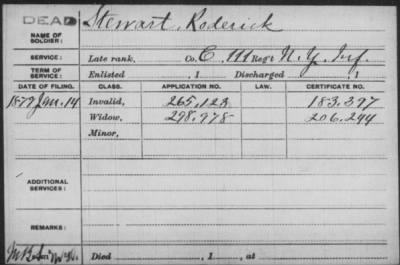 DEAD Stewart, Roderick
NAME OF SOLDIER:
SERVICE: Late rank, Co. C, 111 Reg't N.Y. Inf.
TERM OF SERVICE: Enlisted , 1 Discharged , 1
DATE OF FILING. CLASS. APPLICATION NO. LAW. CERTIFICATE NO.
1879 Jan. 14 Invalid, 265,123 183,397
Widow, 298,978 206,244
Minor,
ADDITIONAL SERVICES:
REMARKS:
Died , 1 , at